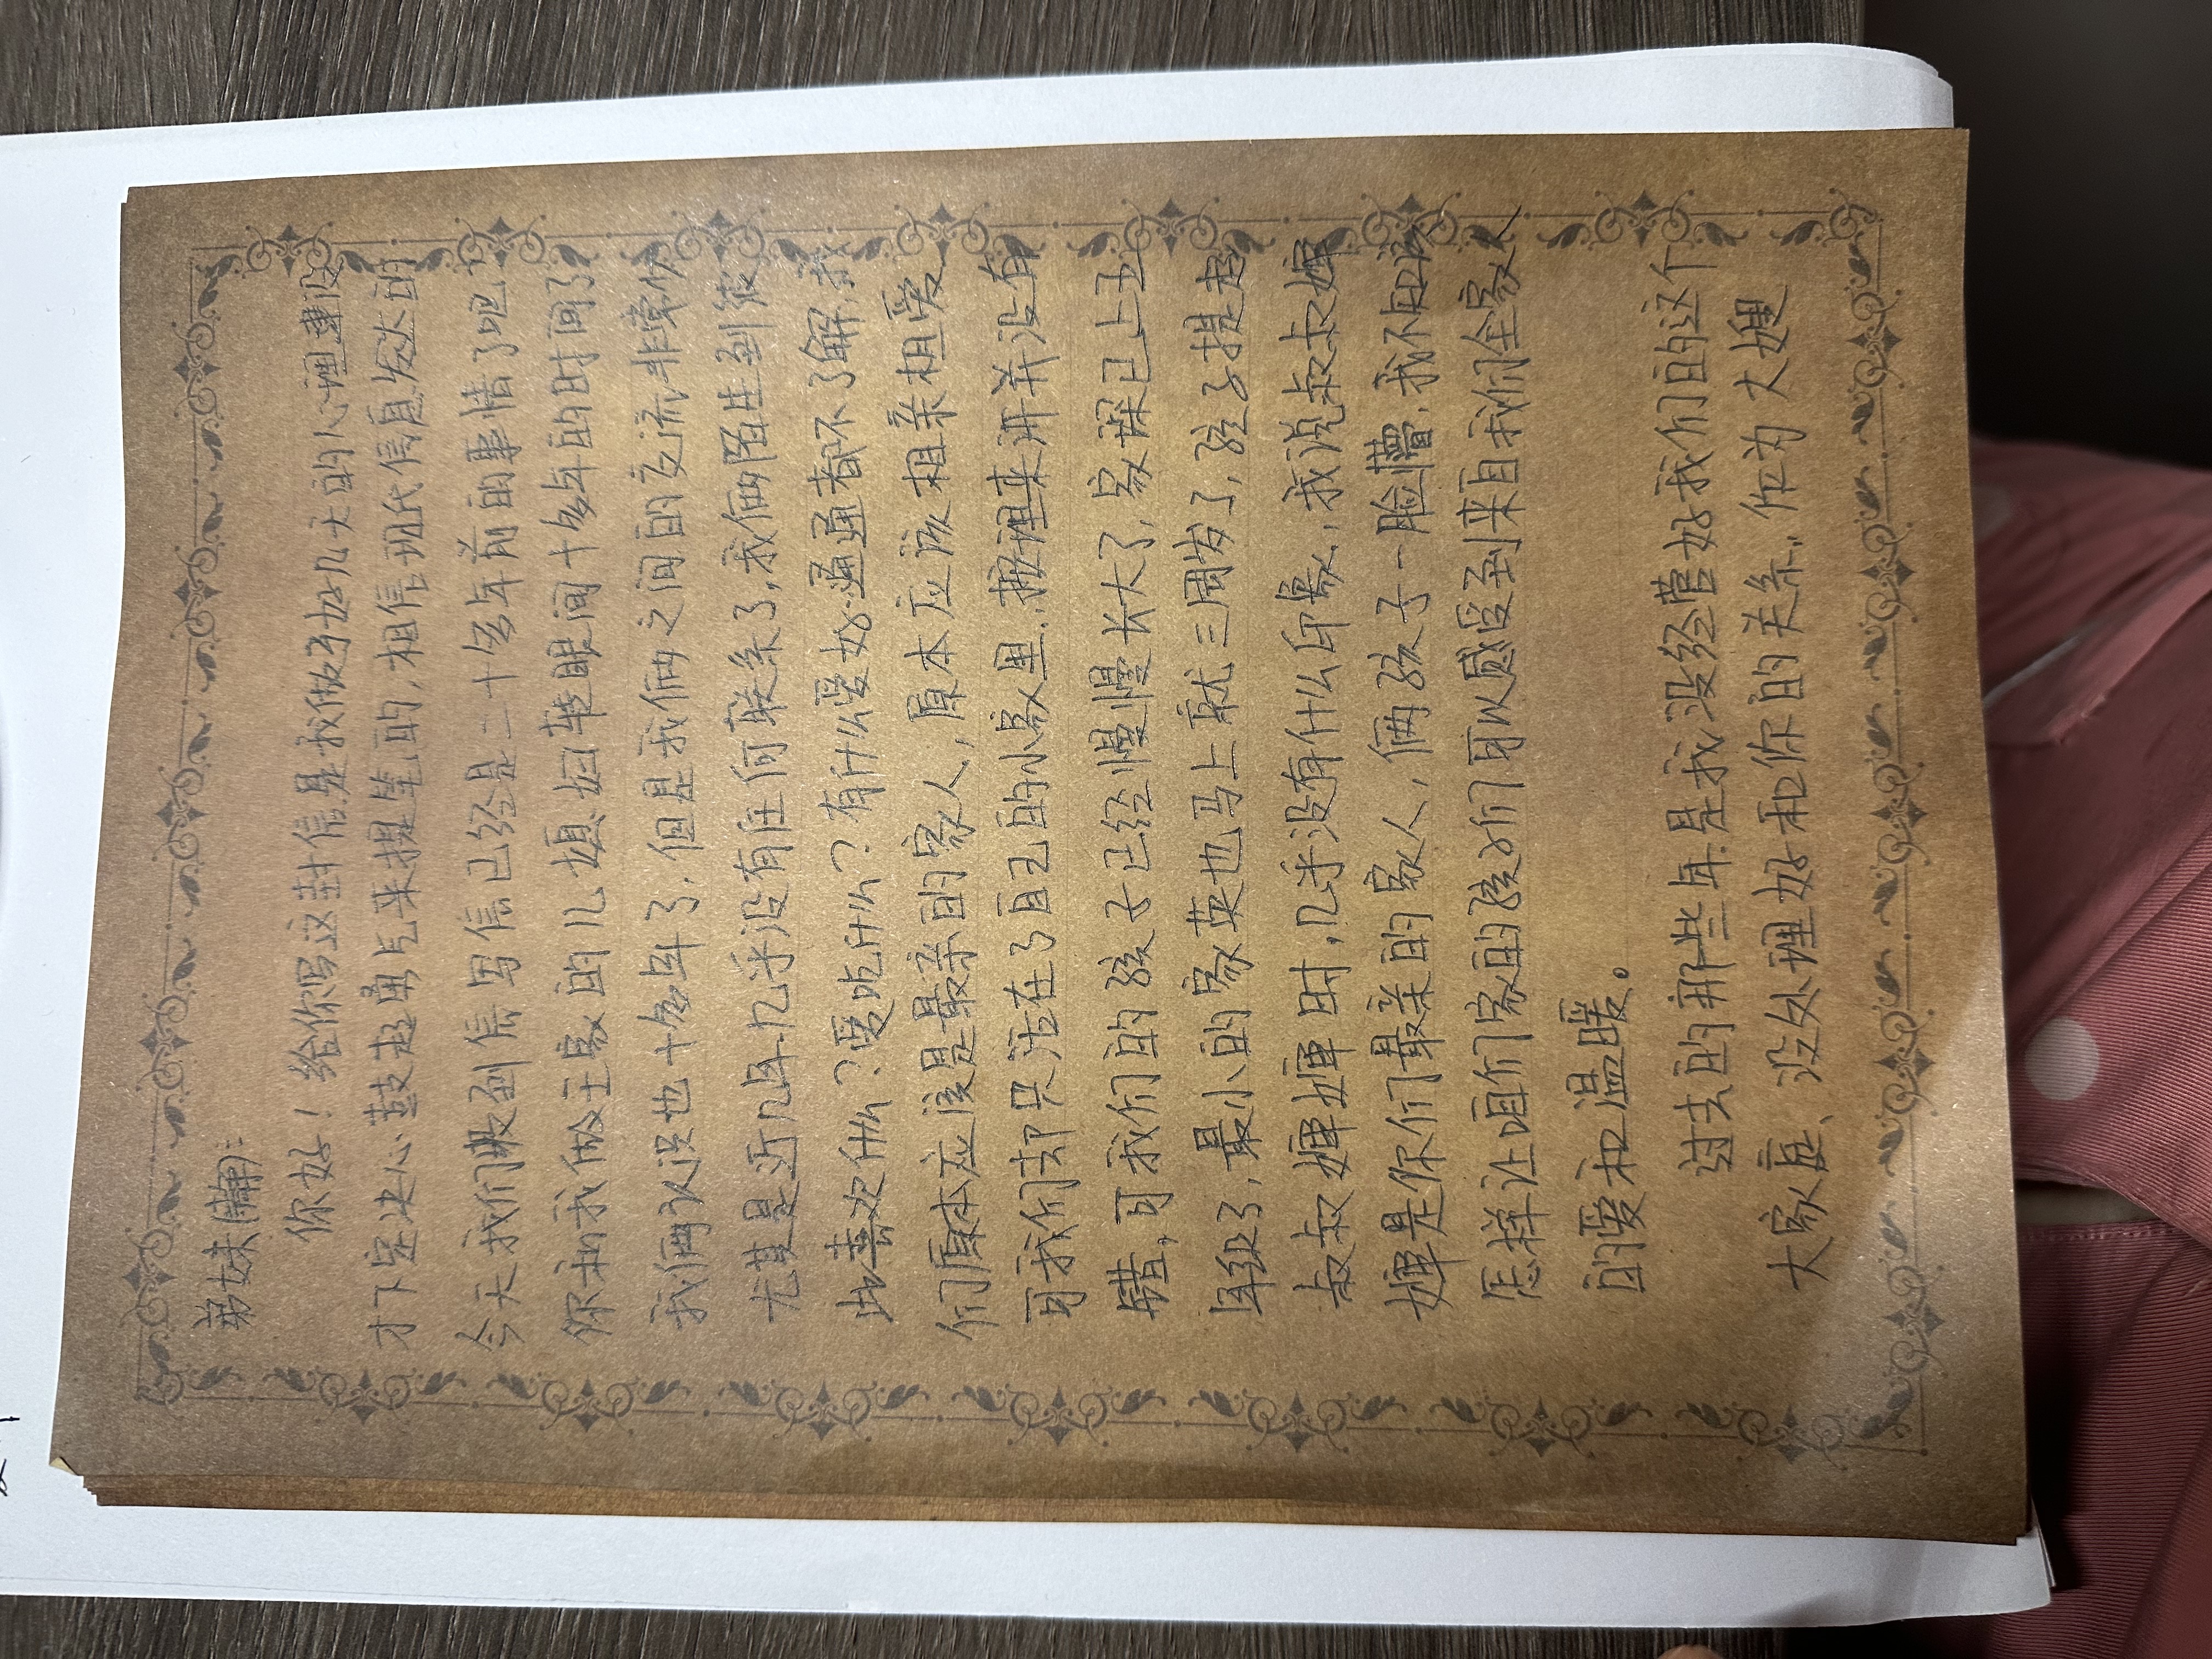 弟妹
你好！给你写这封信是我做了好几天的心理建设
才下定决心鼓起勇气来提笔的，相信现代信息发达的
今天我们收到信写信已经是二十多年前的事情了吧
你和我做王家的儿媳妇转眼间十多年的时间了
我俩认识也十多年了，但是我俩之间的交流非常少
尤其是近几年几乎没有任何联系了，我俩陌生到彼
此喜欢什么？爱吃什么？有什么爱好通通都不了解，我
们原本应该是最亲的家人，原本应该相亲相爱
可我们却只活在了自己的小家里，按理来讲并没有
错，可我们的孩子已经慢慢长大了，家琛已上五
年级了，最小的家英也马上就三周岁了，孩子提起
叔叔婶婶时，几乎没有什么印象，我说叔叔婶
婶是你们最亲的家人，俩孩子一脸懵，我不知道
怎样让咱们家的孩子们可以感受到来自我们全家人
的爱和温暖。
过去的那些年是我没经营好我们的这个
大家庭、没处理好和你的关系，作为大嫂